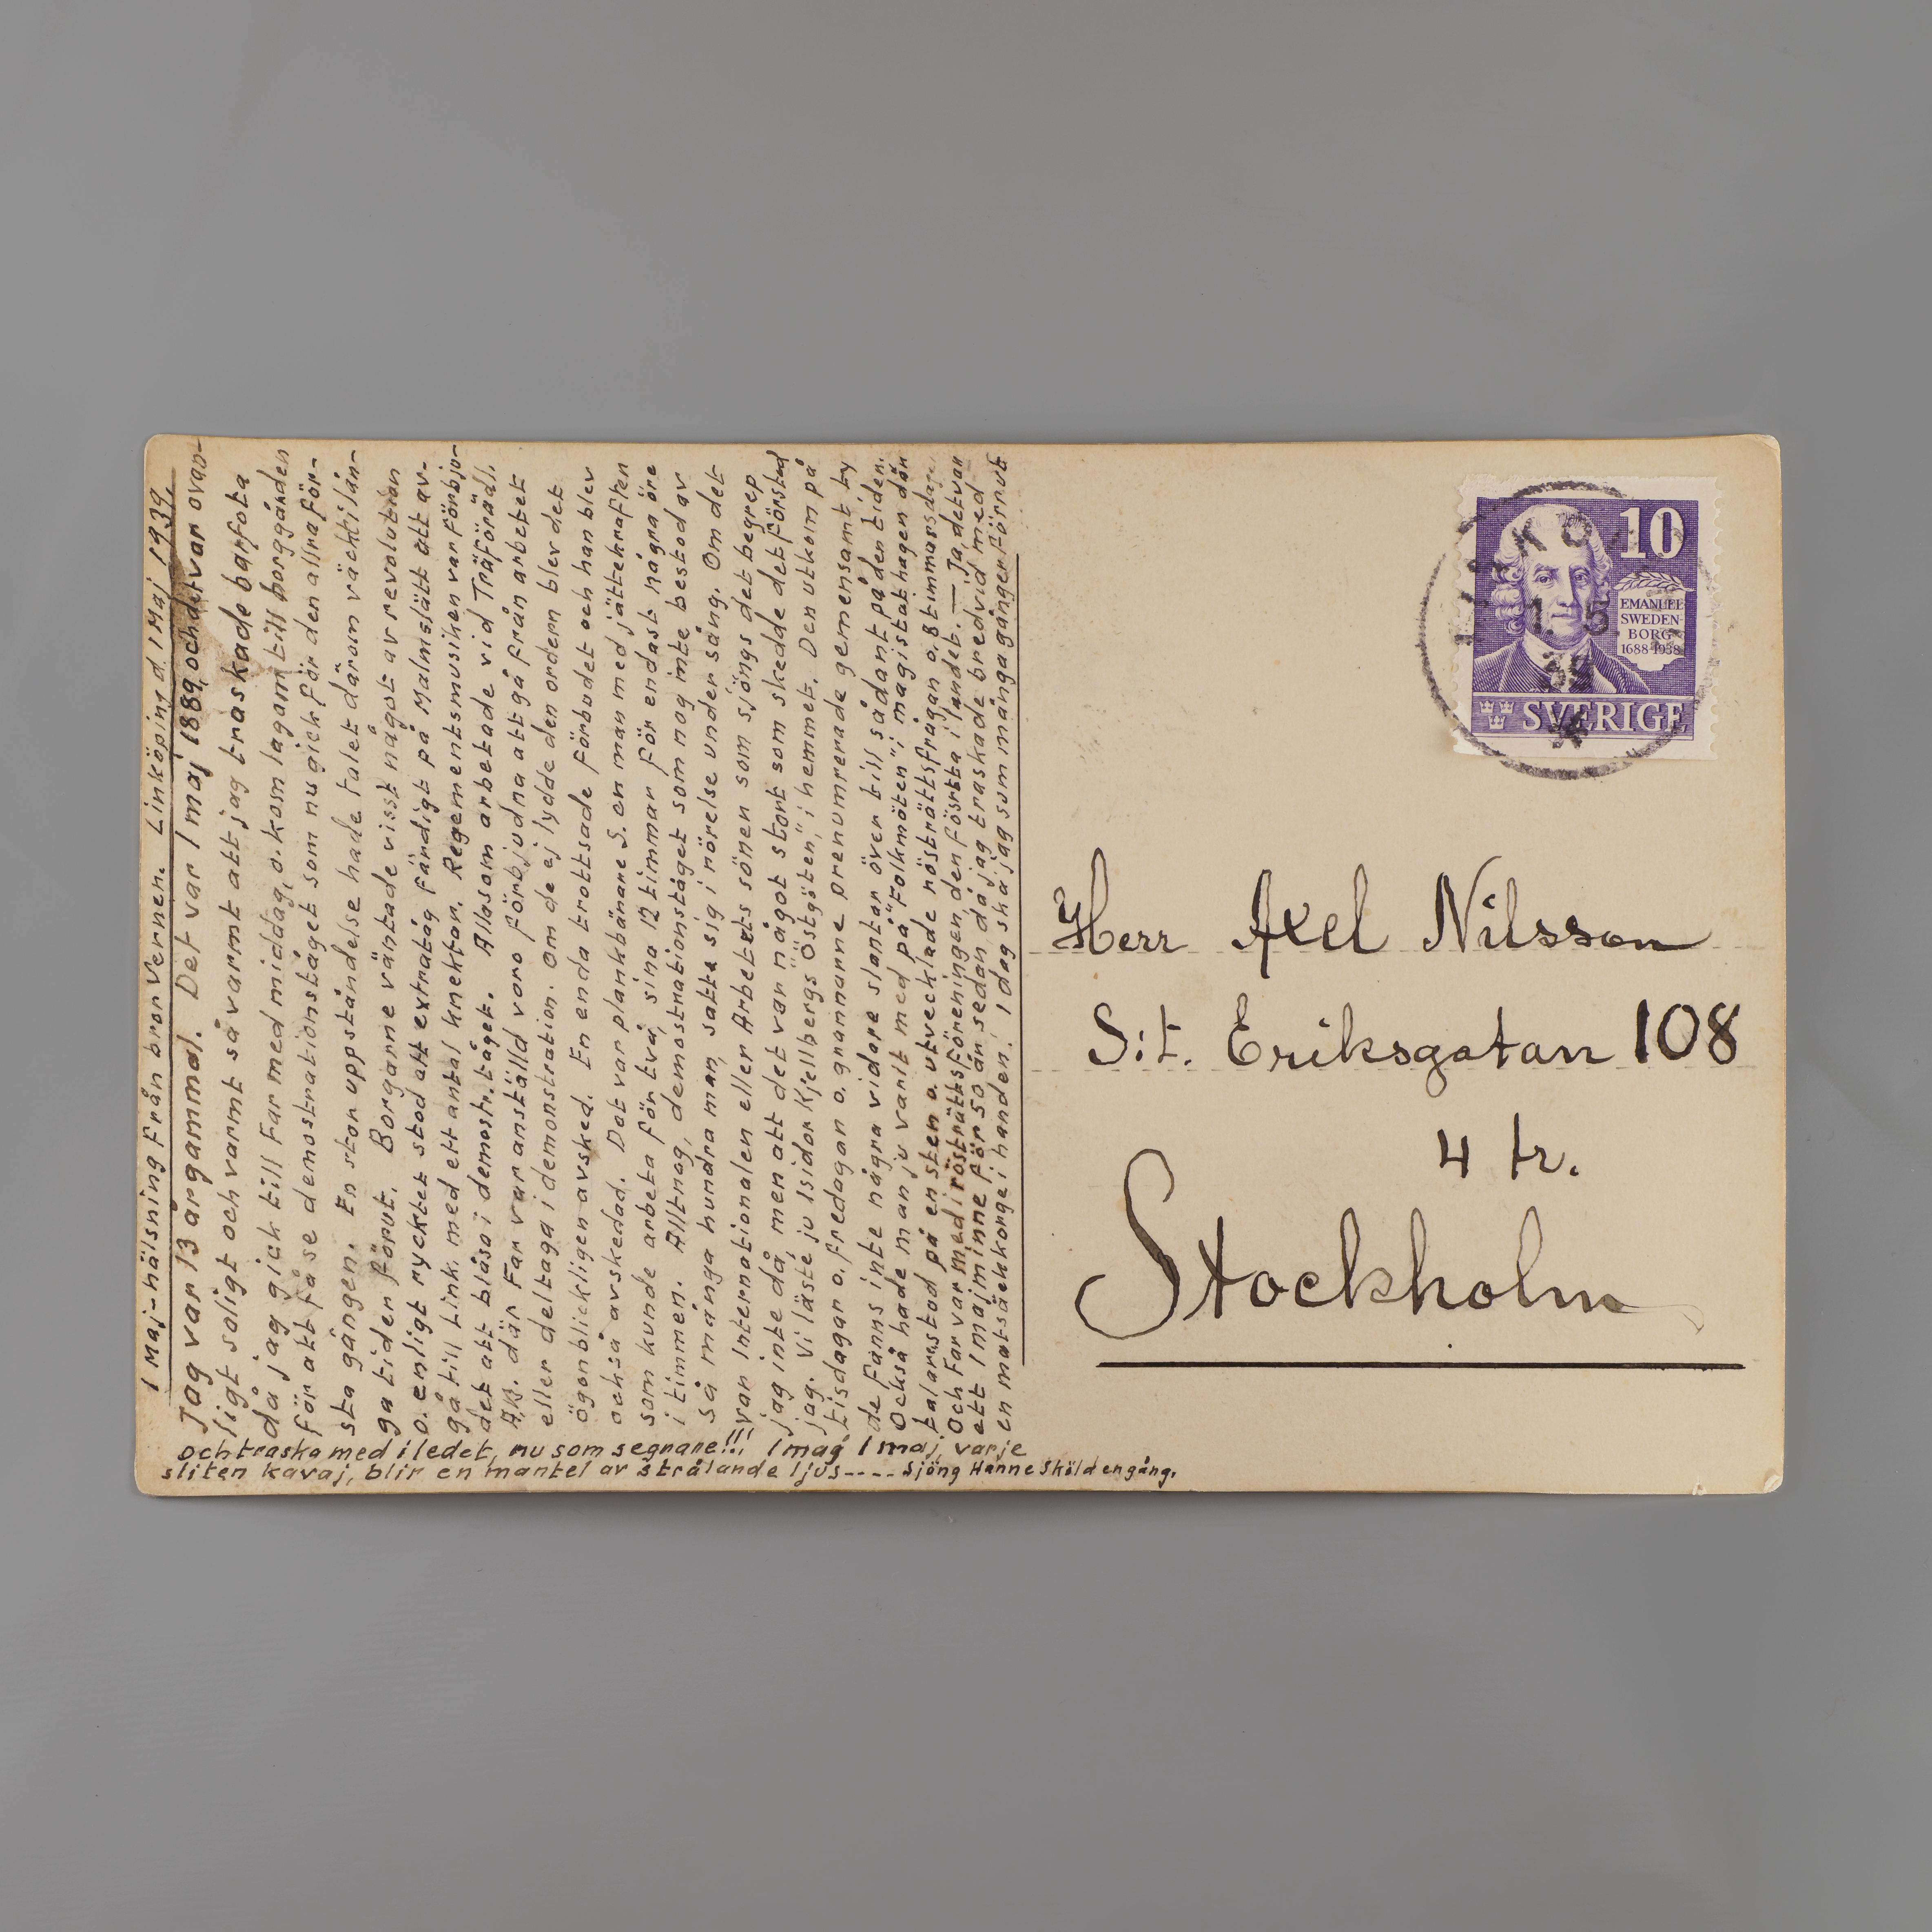 1 Maj-hälsning från bror Verner. Linköping d. 1 Maj 1939.
Jag var 13 år gammal. Det var 1 maj 1889, och det var ovan-
ligt soligt och varmt så varmt att jag traskade barfota
då jag gick till Far med middag, o. kom lagam till borggården
för att få se demostrationståget som nu gick för den allra för-
sta gången. En stor uppståndelse hade talet därom väckt i lån-
ga tider förut. Borgarne väntade visst något av revolution
o. enligt ryktet stod att extratåg färdigt på Malmslätt att av-
gå till Link. med ett antal knektar. Regementsmusiken var förbju-
det att blåsa i demostr. tåget. Alla som arbetade vid Träförädl.
A.B. där Far var anställd voro förbjudna att gå från arbetet
eller deltaga i demonstration. om de ej lydde den ordern blev det
ögonblickligen avsked. En enda trottsade förbudet och han blev
också avskedad. Det var plankbärare S. en man med jättekraften
som kunde arbeta för två, sina 12 timmar för endast några öre
i timmen. Alltnog, demostrationståget som nog inte bestod av
så många hundra man, satte sig i rörelse under sång. Om det
var Internationalen eller Arbetets söner som sjöngs det begrep
jag inte då, men att det var något stort som skedde det förstod
jag. Vi läste ju Isidor Kjellbergs "Östgöten", i hemmet. Den utkom på
tisdagar o. fredagar o. grannarne prenumrerade gemensamt ty
de fanns inte några vidare slantar över till sådant på den tiden.
Också hade man ju varit med på "Folkmöten" i magistathagen där
talarestod på en sten o. utvecklade rösträttsfrågan o. 8 timmarsdagen
Och Far var med i rösträttsföreningen, den första i landet. — Ja, det var
ett 1 maj minne för 50 år sedan då jag traskade bredvid med
en matsäckkorge i handen. I dag ska jag som många gånger förrut
och traska med i ledet, nu som segrare!!! 1 maj 1 maj, varje
sliten kavaj, blir en mantel av strålande ljus---- sjöng Hanne Sköld en gång.
Herr Axel Nilsson
S:t. Eriksgatan 108
4 tr.
Stockholm
10
EMANUEL
SWEDEN-
BORG
1688-1938
SVERIGE
1. 5.
39